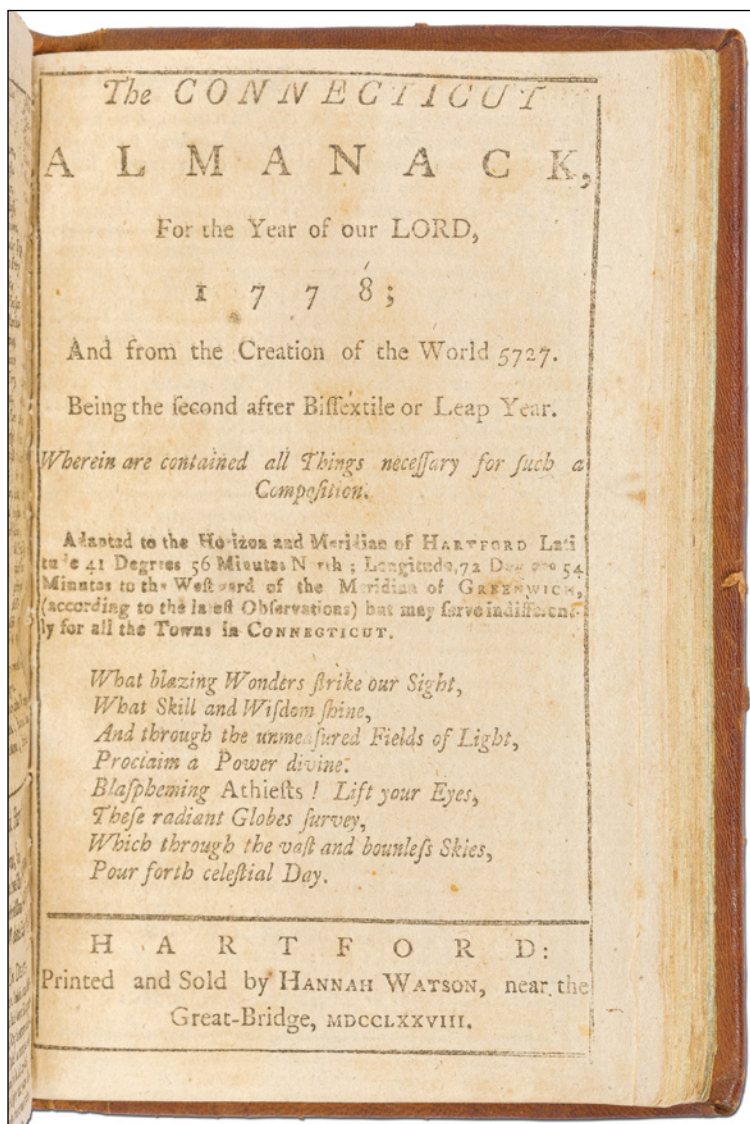 The CONNECTICUT
ALMANACK,
For the Year of our LORD,
1778;
And from the Creation of the World 5727.
Being the ſecond after Biſſextile or Leap Year.
Wherein are contained all Things neceſſary for ſuch a
Compoſition.
Adapted to the Horizon and Meridian of HARTFORD Lati
41 Degrees 56 Minutes North; Longitude, 72 54
Minutes to the Weſtward of the Meridian of GREENWICH,
(according to the lateſt Obſervations) but may ſerve indifferent-
ly for all the Towns in CONNECTICUT.
What blazing Wonders ſtrike our Sight,
What Skill and Wiſdom ſhine,
And through the unmeaſured Fields of Light,
Proclaim a Power divine.
Blaſpheming Athieſts! Lift your Eyes,
Theſe radiant Globes ſurvey,
Which through the vaſt and bounleſs Skies,
Pour forth celeſtial Day.
HARTFORD:
Printed and Sold by HANNAH WATSON, near the
Great-Bridge, MDCCLXXVIII.